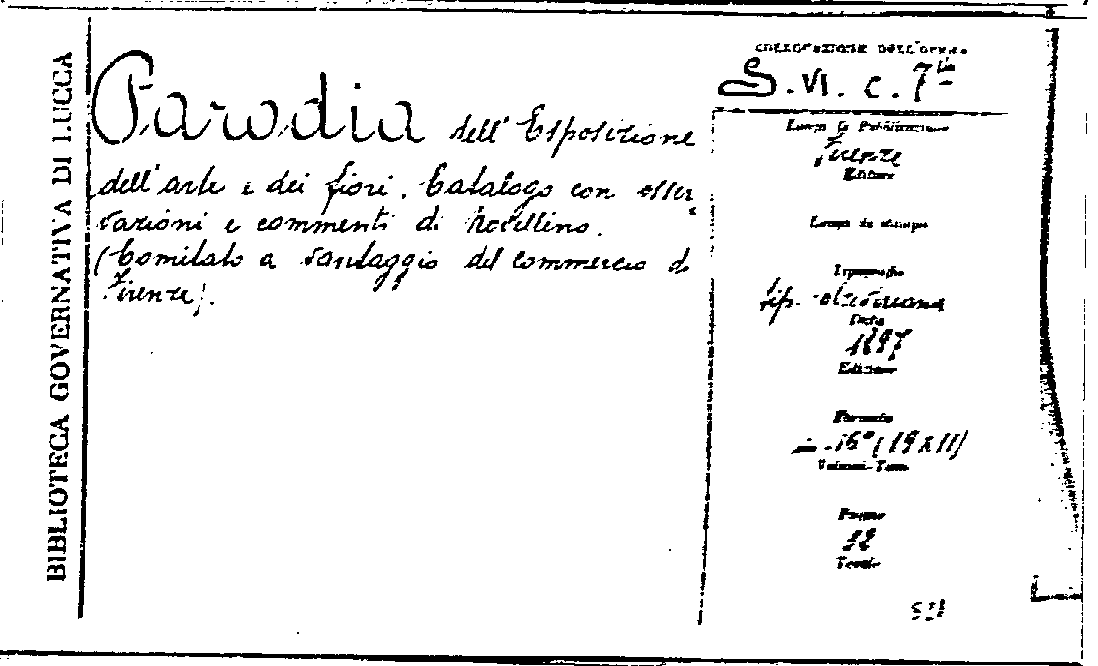 BIBLIOTECA GOVERNATIVA DI LUCCA
Parodia dell' Esposizione
dell'arte e dei fiori. Catalogo con osser,
vazioni e commenti di Novellino.
(Comitato a vantaggio del commercio di
Firenze).
COLLOCAZIONE DELL'OPERA
S. VI. c. 7
Luogo di Pubblicazione
Firenze
Editore
Luogo di stampa
Tipografo
tip.
Data
1897
Edizione
Formato
in-16° (19x11)
Volumi-Tomi
Pagine
32
Tavole